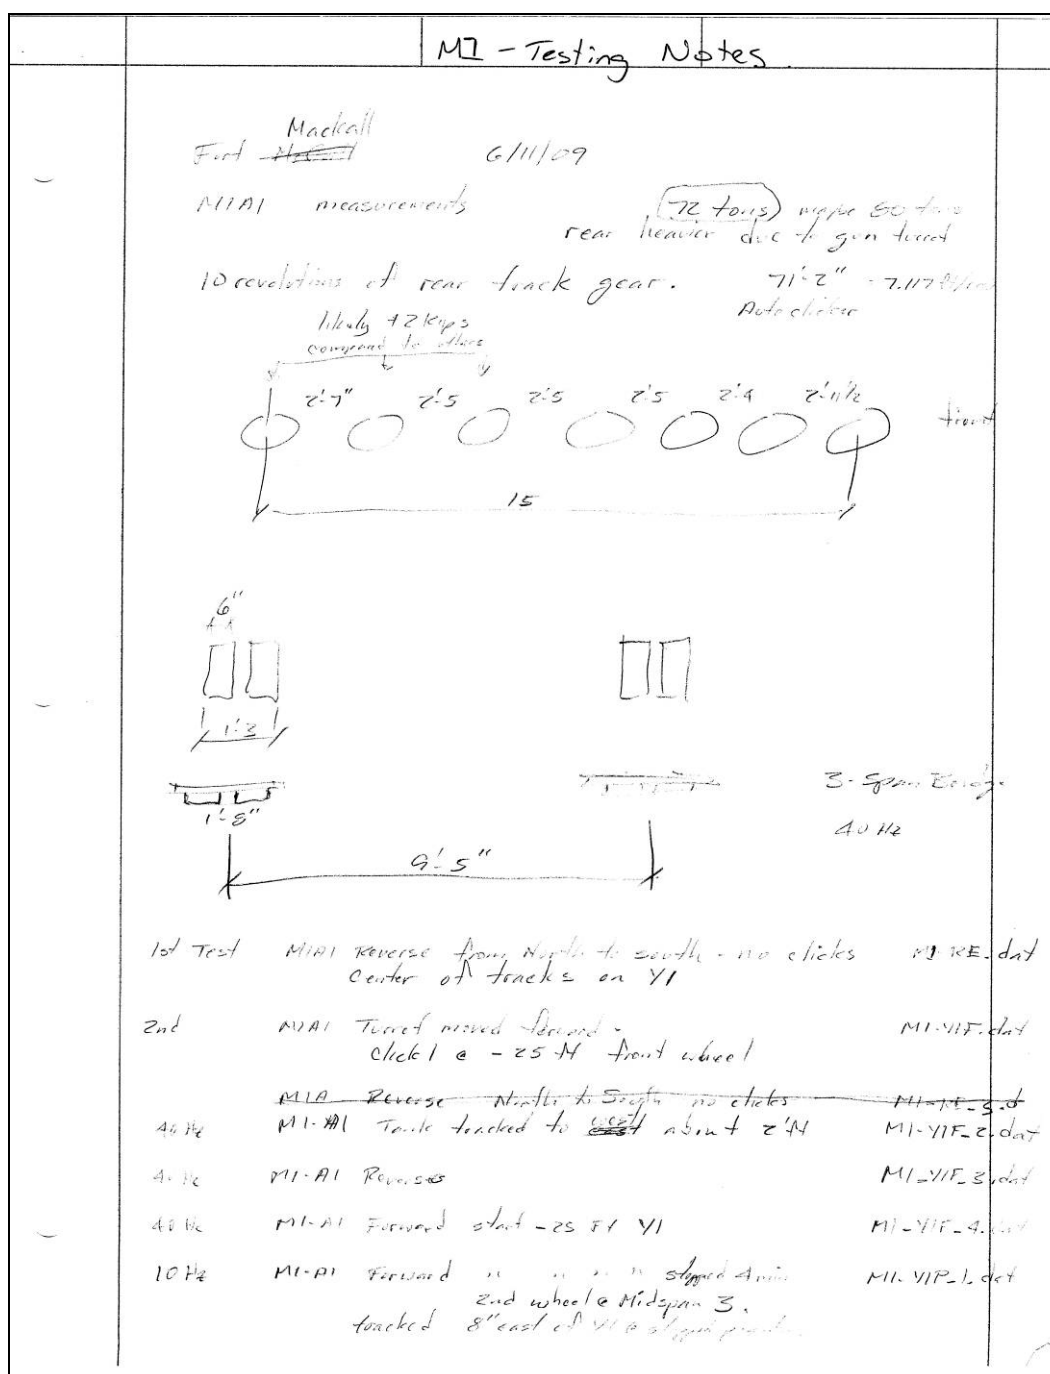 M1 - Testing Notes
Mackall
Fort 6/11/09
M1A1 measurements 72 tons
rear heavier due to gun turret
10 revolutions of rear track gear. 71'-2" - 7.117
Auto clicker
likely +2 kips
compared to others
2'-7" 2'-5 2'-5 2'-5 2'-4 2'-11 1/2 front
15
6"
1'-3
1'-8"
3-Span Bridge
40 Hz
9'-5"
1st Test M1A1 Reverse from North to south - no clicks M1-RE.dat
Center of tracks on Y1
2nd M1A1 Turret moved forward - M1-Y1F.dat
Click 1 @ -25 ft front wheel
M1A Reverse North to South no clicks
40 Hz M1-A1 Tank tracked to west about 2' ft M1-Y1F_2.dat
40 Hz M1-A1 Reverses M1-Y1F_3.dat
40 Hz M1-A1 Forward start -25 FT Y1 M1-Y1F_4.dat
10 Hz M1-A1 Forward " " " " stopped 4 min M1-Y1P_1.dat
2nd wheel @ Midspan 3.
tracked 8" east of Y1 @